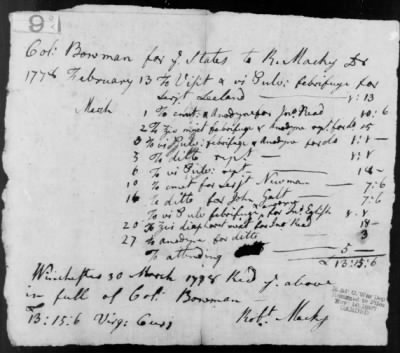 9
Col: Bowman for ye States to R. Macky Dr
1778 February 13 To Visit & vi Pulv: febrifuge for
Serjt Lealand — 1:13
March 1 To emet: & anodyne for Jno Read 10:6
2 To zis mixt febrifuge & Anodyne rept for do 15
3 To vi Pulv: febrifuge & Anodyne for do 1:1
5 To ditto rept —
6 To vi Pulv: rept — 18
10 To emet for Serjt Newman — 7:6
16 To ditto for John Galt — 7:6
To vi Pulv febrifuge for Jno
20 To zis diaphoret mixt for Jno Read 18
27 To anodyne for ditto — 3
To attending — 5
£13:15:6
Winchester 30 March 1778 Recd ye above
in full of Col: Bowman —
£13:15:6 Virga Curry Robt Macky